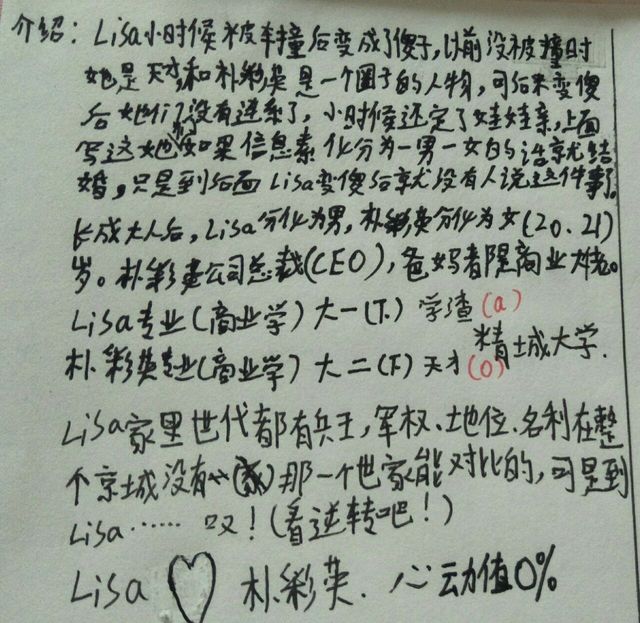 介绍：Lisa小时候被车撞后变成了傻子，以前没被撞时
她是天才，和朴彩英是一个圈子的人物，可后来变傻
后她们没有连系了，小时候还定了娃娃亲，上面
写这她如果信息素化分为一男一女的话就结
婚，只是到后面Lisa变傻后就没有人说这件事了。
长成大人后，Lisa分化为男，朴彩英分化为女(20.21)
岁。朴彩英公司总裁(CEO)，爸妈都是商业大佬。
Lisa专业(商业学)大一(下)学渣(a)
朴彩英专业(商业学)大二(下)天才(O)
精城大学.
Lisa家里世代都有兵王，军权、地位、名利在整
个京城没有那一个世家能对比的，可是到
Lisa……叹！(看逆转吧！)
Lisa ♡ 朴彩英. 心动值0%